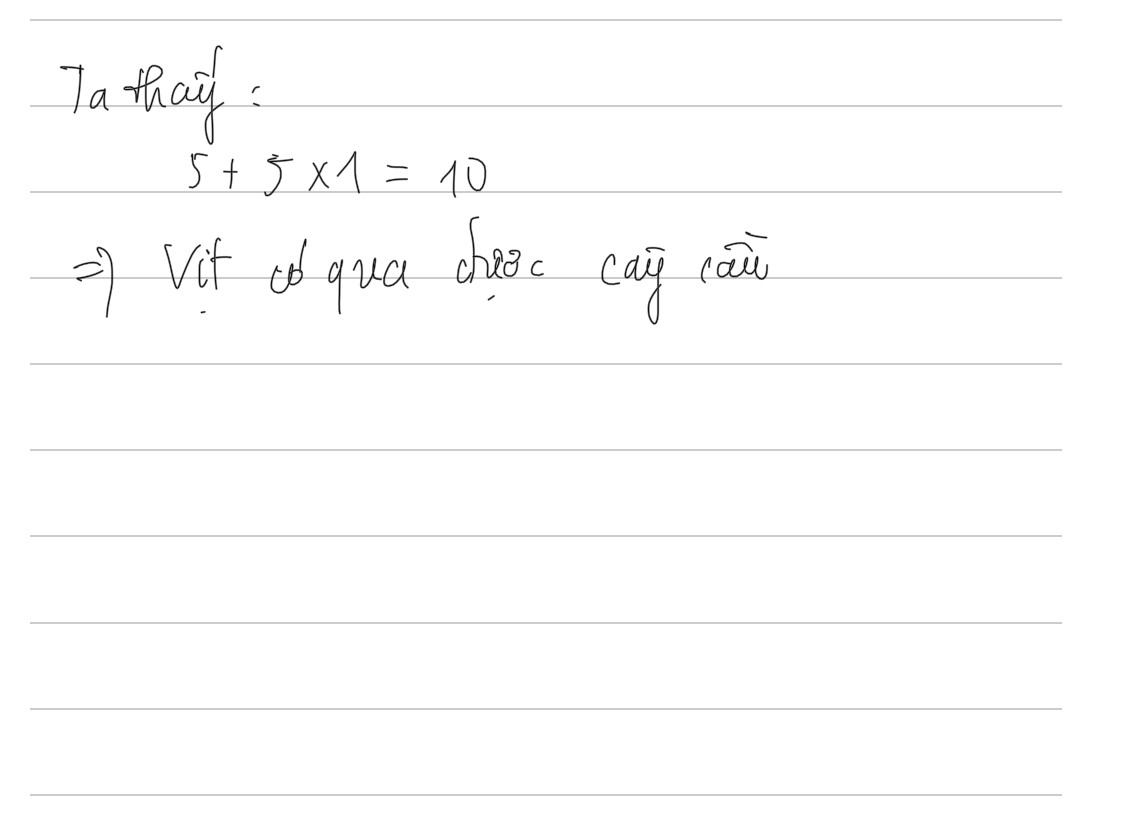 Ta thấy :
5 + 5 x 1 = 10
=> Vịt có qua được cây cầu